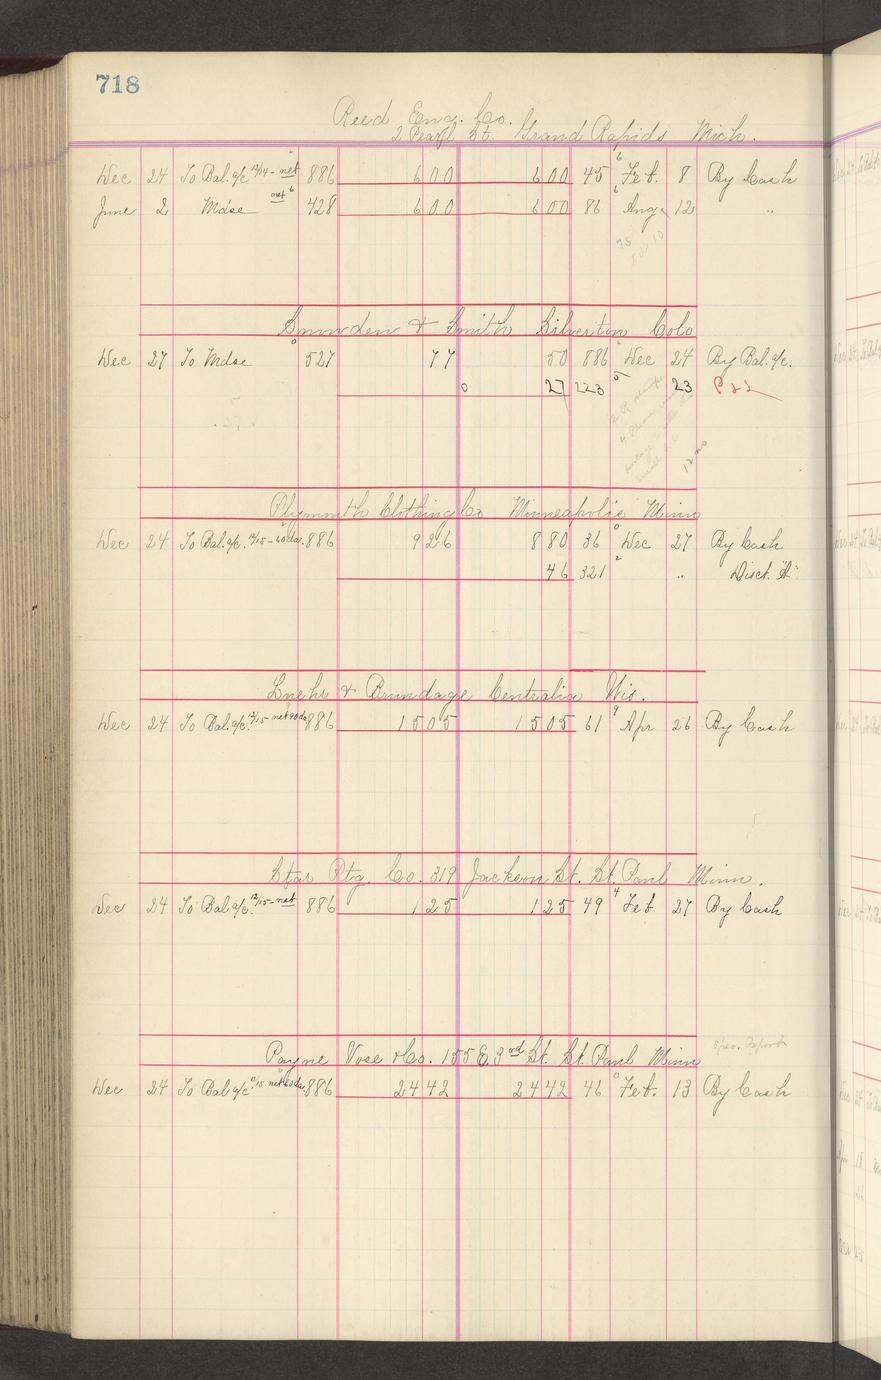 718
Reed Eng. Co.
2 Pearl St. Grand Rapids Mich.
Dec 24 To Bal. a/c 12/14 - net 886 6 00 6 00 45 6 Feb. 8 By Cash
June 2 Mdse net 6 428 6 00 6 00 86 6 Aug 12 "
Snowden & Smith Silverton Colo
Dec 27 To Mdse 0 527 77 50 886 Dec 24 By Bal. a/c.
0 27 223 5 23 P&L
Plymouth Clothing Co Minneapolis Minn
Dec 24 To Bal. a/c. 12/15 - 60 da. 886 9 26 8 80 36 0 Dec 27 By Cash
46 321 2 " Disct. "A"
& Brundage Centralia Wis.
Dec 24 To Bal. a/c. 12/15 - net 90 da 886 15 05 15 05 61 9 Apr 26 By Cash
Star Ptg. Co. 319 Jackson St. St. Paul Minn.
Dec 24 To Bal a/c. 12/15 - net 886 1 25 1 25 49 4 Feb 27 By Cash
Payne Vose & Co. 155 E. 3rd St. St. Paul Minn
Dec 24 To Bal a/c 886 24 42 24 42 46 0 Feb. 13 By Cash